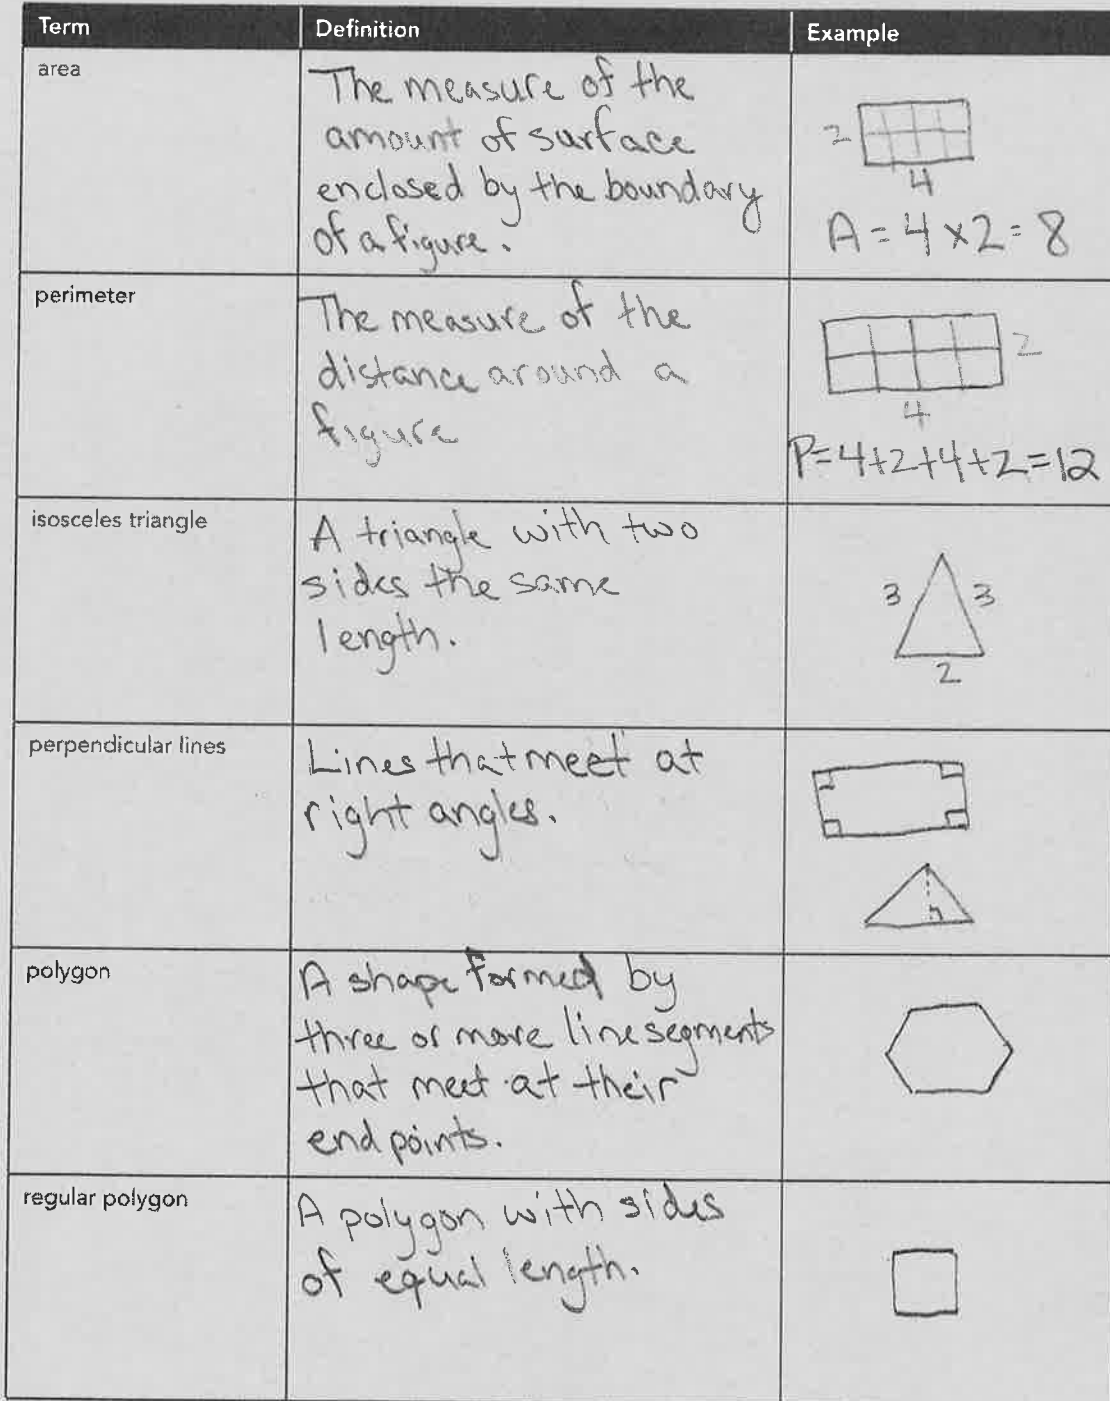 Term Definition Example
area
The measure of the
amount of surface
enclosed by the boundary
of a figure.
2
4
A = 4 × 2 = 8
perimeter
The measure of the
distance around a
figure
2
4
P=4+2+4+2=12
isosceles triangle
A triangle with two
sides the same
length.
3 3
2
perpendicular lines
Lines that meet at
right angles.
polygon
A shape formed by
three or more line segments
that meet at their
endpoints.
regular polygon
A polygon with sides
of equal length.